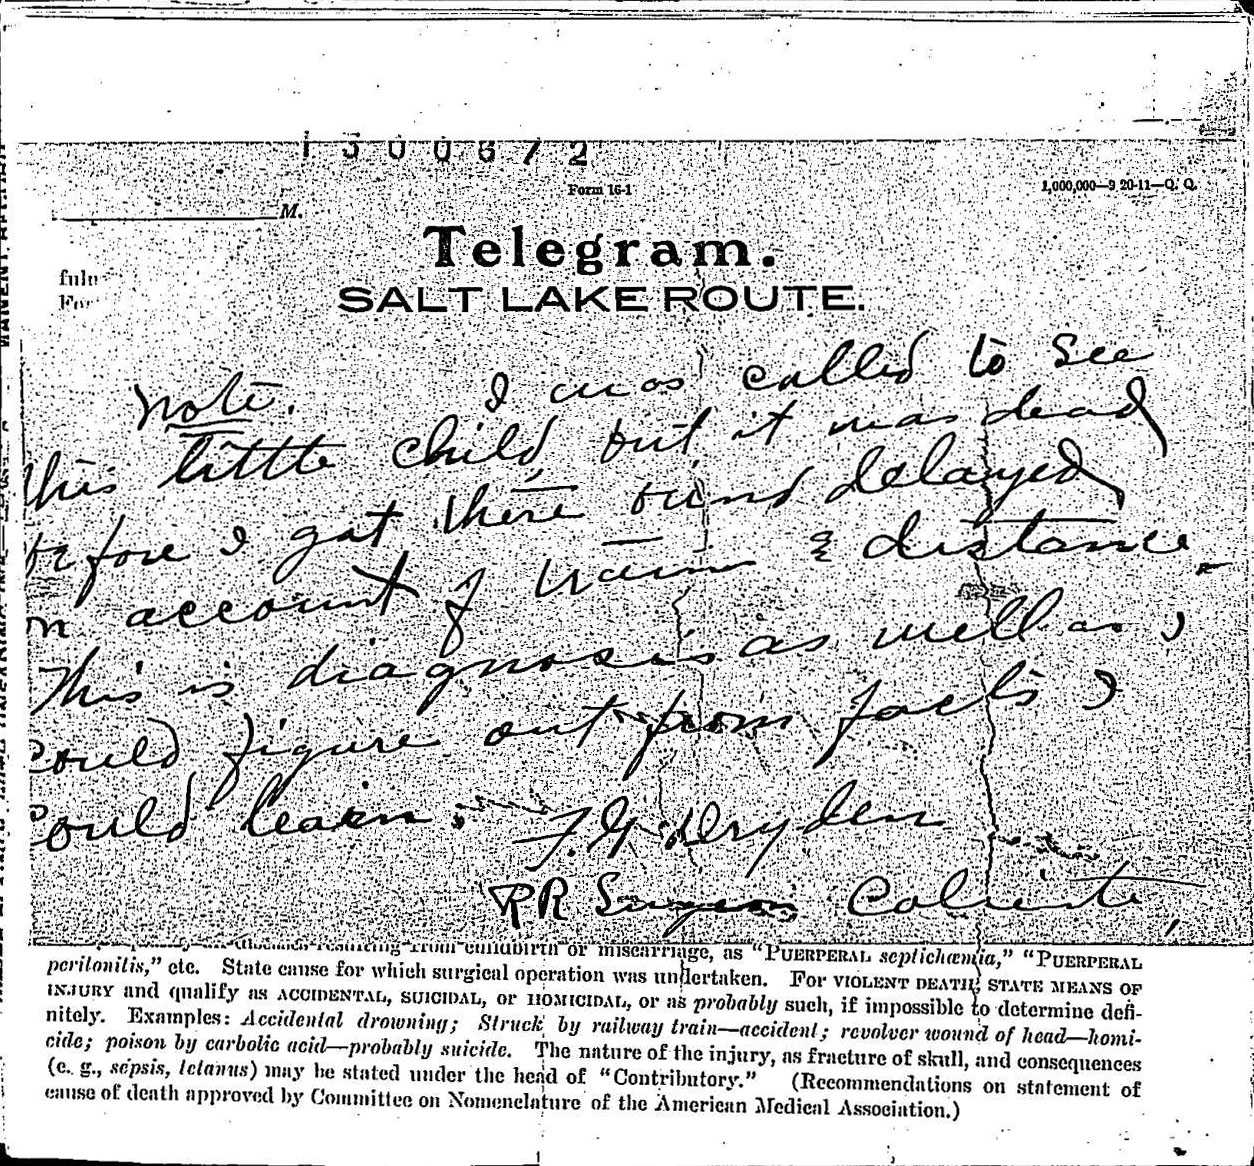 1300672
Form 16-1
1,000,000—9 20-11—Q. Q.
M.
Telegram.
SALT LAKE ROUTE.
Note. I was called to see
this little child, but it was dead
before I got there being delayed
on account of train & distance.
This is diagnosis as well as I
could figure out from facts I
could learn. F. G. Dryden
RR Surgeon Caliente,
resulting from childbirth or miscarriage, as "PUERPERAL septichæmia," "PUERPERAL
peritonitis," etc. State cause for which surgical operation was undertaken. For VIOLENT DEATHS STATE MEANS OF
INJURY and qualify as ACCIDENTAL, SUICIDAL, or HOMICIDAL, or as probably such, if impossible to determine defi-
nitely. Examples: Accidental drowning; Struck by railway train—accident; revolver wound of head—homi-
cide; poison by carbolic acid—probably suicide. The nature of the injury, as fracture of skull, and consequences
(e. g., sepsis, tetanus) may be stated under the head of "Contributory." (Recommendations on statement of
cause of death approved by Committee on Nomenclature of the American Medical Association.)